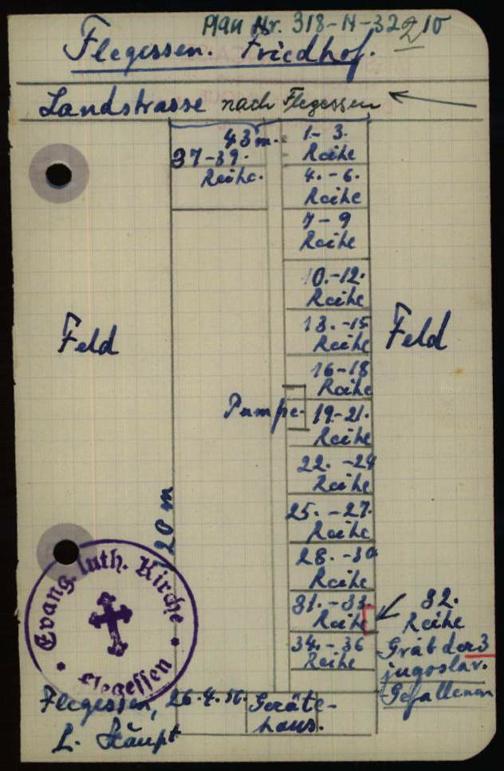 Plan Nr. 318-N-32210
Flegessen. Friedhof.
Landstrasse nach Flegessen
43 m.
37-39.
Reihe.
1- 3.
Reihe
4. - 6.
Reihe
7 - 9
Reihe
10. - 12.
Reihe
13. - 15
Reihe
16 - 18
Reihe
Feld
Feld
Pumpe
19. - 21.
Reihe
22. - 24
Reihe
25. - 27.
Reihe
28. - 30
Reihe
20 m
31. - 33.
Reihe
32.
Reihe
Grab der 3
jugoslav.
Gefallenen
34. - 36
Reihe
Evang. luth. Kirche
Flegessen
Flegessen, 26.4.56.
Geräte-
haus.